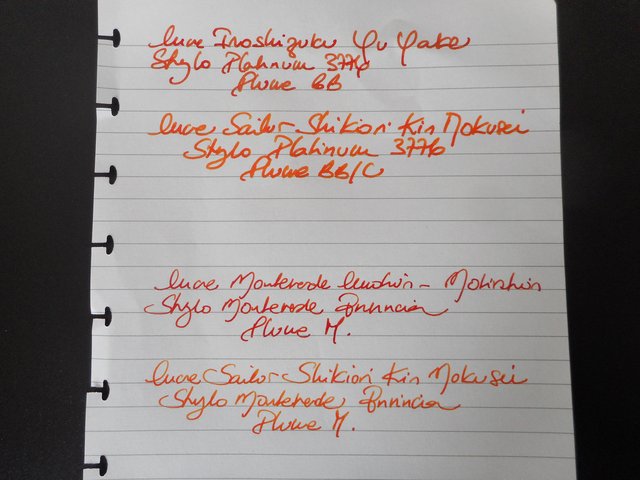 Encre Iroshizuku Yu Yake
Stylo Platinum 3776
Plume BB
Encre Sailor Shikiori Kin Mokusei
Stylo Platinum 3776
Plume BB/C
Encre Monteverde
Stylo Monteverde
Plume M.
Encre Sailor Shikiori Kin Mokusei
Stylo Monteverde
Plume M.